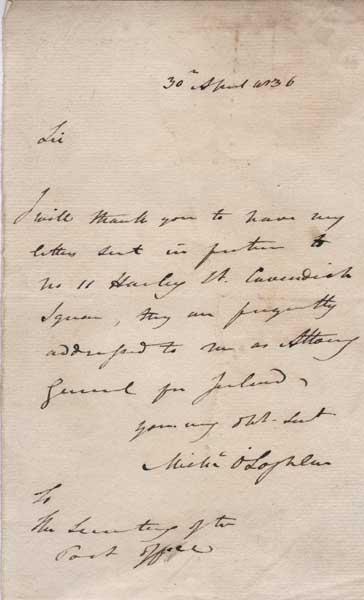 30th April 1836
Sir
I will thank you to have my
letters sent in future to
no 11 Harley St. Cavendish
Square, they are frequently
addressed to me as Attorney
General for Ireland,
your ob't. sert
Michl. O'Loghlen
To
The Secretary of the
Post Office